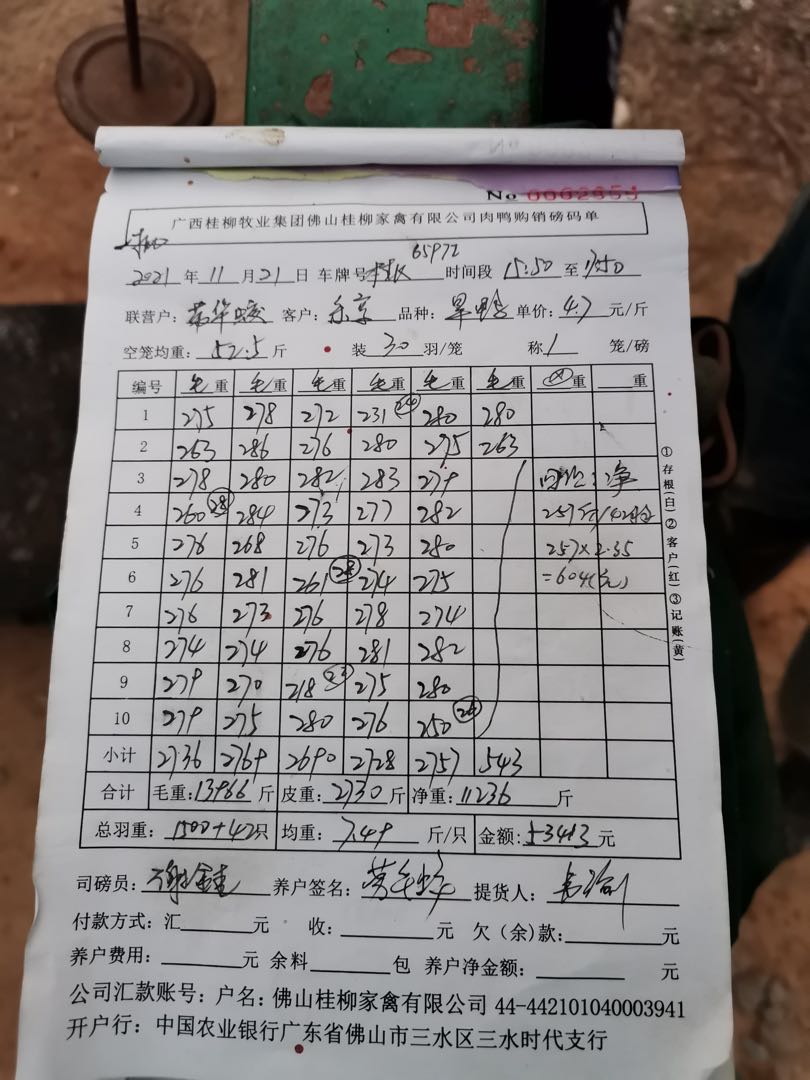 No 0002654
广西桂柳牧业集团佛山桂柳家禽有限公司肉鸭购销磅码单
65972
2021 年 11 月 21 日 车牌号 时间段 15:50 至 17:50
联营户: 客户: 乐享 品种: 旱鸭 单价: 4.7 元/斤
空笼均重: 52.5 斤 装 30 羽/笼 称 1 笼/磅
编号 毛重 毛重 毛重 毛重 毛重 毛重 重 重
1 275 278 272 231 (24) 280 280
2 263 286 276 280 275 263
3 278 280 282 283 279 净
4 260 (28) 284 273 277 282 257斤/42
5 276 268 276 273 280 257×2.35
6 276 281 261 (28) 274 275 =604(元)
7 276 273 276 278 274
8 274 274 276 281 282
9 279 270 218 (23) 275 280
10 279 275 280 276 250 (26)
小计 2736 2769 2690 2728 2757 543
合计 毛重: 13966 斤 皮重: 2730 斤 净重: 11236 斤
总羽重: 1500+42 只 均重: 7.49 斤/只 金额: 53413 元
司磅员: 养户签名: 提货人:
付款方式: 汇 元 收: 元 欠(余)款: 元
养户费用: 元 余料 包 养户净金额: 元
公司汇款账号: 户名: 佛山桂柳家禽有限公司 44-442101040003941
开户行: 中国农业银行广东省佛山市三水区三水时代支行
①存根(白)②客户(红)③记账(黄)